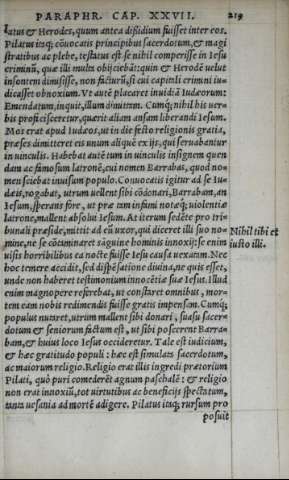 PARAPHR. CAP. XXVII. 219
latus & Herodes, quum antea dissidium fuisset inter eos.
Pilatus itaq; cōuocatis principibus sacerdotum, & magi
stratibus ac plebe, testatus est se nihil comperisse in Iesu
criminū, quæ illi multa obijciebāt: quin & Herodē uelut
insontem dimisisse, non facturū, si cui capitali crimini iu-
dicasset obnoxium. Vt autē placaret inuidiā Iudæorum:
Emendatum, inquit, illum dimittam. Cumq; nihil his uer-
bis proficisceretur, quærit aliam ansam liberandi Iesum.
Mos erat apud Iudæos, ut in die festo religionis gratia,
præses dimitteret eis unum aliquē ex ijs, qui seruabantur
in uinculis. Habebat autē tum in uinculis insignem quen
dam ac famosum latronē, cui nomen Barrabas, quod no-
men sciebat inuisum populo. Conuocatis igitur ad se Iu-
dæis, rogabat, utrum uellent sibi cōdonari, Barrabam, an
Iesum, sperans fore, ut præ tam infami notæq; uiolentiæ
latrone, mallent absolui Iesum. At iterum sedēte pro tri-
bunali præside, mittit ad eū uxor, qui diceret illi suo no-
mine, ne se cōtaminaret sāguine hominis innoxij: se enim
uisis horribilibus ea nocte fuisse Iesu causa uexatam. Nec
hoc temere accidit, sed dispēsatione diuina, ne quis esset,
unde non haberet testimonium innocētiæ suæ Iesus. Illud
enim magnopere referebat, ut constaret omnibus, mor-
tem eam nobis redimendis fuisse gratis impensam. Cumq;
populus nutaret, utrum mallent sibi donari, suasu sacer-
dotum & seniorum factum est, ut sibi poscerent Barra-
bam, & huius loco Iesus occideretur. Tale est iudicium,
& hæc gratitudo populi: hæc est simulata sacerdotum,
ac maiorum religio. Religio erat illis ingredi prætorium
Pilati, quò puri comederēt agnum paschalē: & religio
non erat innoxiū, tot uirtutibus ac beneficijs spectatum,
tanta uesania ad mortē adigere. Pilatus itaq; rursum pro
posuit
Nihil tibi et
iusto illi.